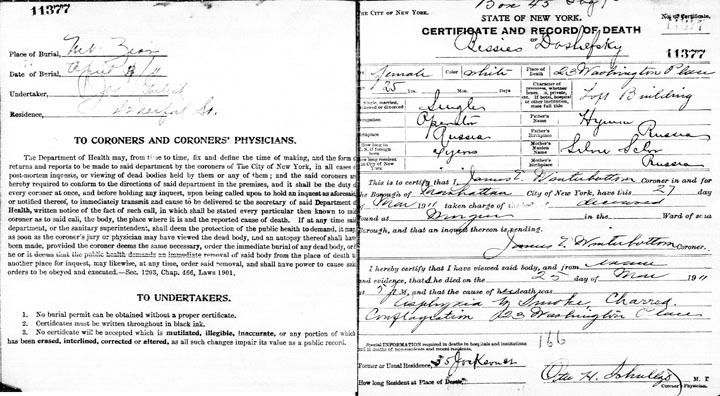 11377
Place of Burial, Mt. Zion
Date of Burial, April 3/11
Undertaker, Jos
Residence, Norfolk St.
TO CORONERS AND CORONERS' PHYSICIANS.
The Department of Health may, from time to time, fix and define the time of making, and the form
returns and reports to be made to said department by the coroners of The City of New York, in all cases
post-mortem inquests, or viewing of dead bodies held by them or any of them; and the said coroners ar
hereby required to conform to the directions of said department in the premises, and it shall be the duty
every coroner at once, and before holding any inquest, upon being called upon to hold an inquest as aforesaid
or notified thereof, to immediately transmit and cause to be delivered to the secretary of said Department o
Health, written notice of the fact of such call, in which shall be stated every particular then known to said
coroner as to said call, the body, the place where it is and the reported cause of death. If at any time said
department, or the sanitary superintendent, shall deem the protection of the public health to demand, it may
as soon as the coroner's jury or physician may have viewed the dead body, and an autopsy thereof shall have
been made, provided the coroner deems the same necessary, order the immediate burial of any dead body, or
he or it deems that the public health demands an immediate removal of said body from the place of death
another place for inquest, may likewise, at any time, order said removal, and shall have power to cause said
orders to be obeyed and executed.—Sec. 1203, Chap. 466, Laws 1901.
TO UNDERTAKERS.
1. No burial permit can be obtained without a proper certificate.
2. Certificates must be written throughout in black ink.
3. No certificate will be accepted which is mutilated, illegible, inaccurate, or any portion of which
has been erased, interlined, corrected or altered, as all such changes impair its value as a public record.
Box 45
THE CITY OF NEW YORK.
STATE OF NEW YORK.
No. of Certificate,
CERTIFICATE AND RECORD OF DEATH
11377
OF
Bessies Dashefsky
11377
female Color white Place of Death 23 Washington Place
25 Yrs. Mos. Days. Character of premises, whether tenement, private, etc. If hotel, hospital or other institution, state full title Loft Building
Single, married, widowed or divorced Single
Operator Father's Name Hyman
Birthplace Russia Father's Birthplace Russia
How long in U. S. if foreign born 4 years Mother's Maiden Name
How long resident in City of New York Mother's Birthplace Russia
This is to certify that I, James E. Winterbottom Coroner in and for
the Borough of Manhattan City of New York, have this 27 day
of Mar 1911 taken charge of the deceased
found at Morgue in the Ward of said
Borough, and that an inquest thereon is pending.
James E. Winterbottom Coroner.
I hereby certify that I have viewed said body, and from same
and evidence, that she died on the 25 day of Mar 1911
at 5 P.M, and that the cause of her death was
Asphyxia by Smoke, Charred.
Conflagration 23 Washington Place
166
Special INFORMATION required in deaths in hospitals and institutions
and in deaths of non-residents and recent residents.
Former or Usual Residence, 35
How long Resident at Place of Death,
Otto H. Schultze M. D.
Coroner's Physician.